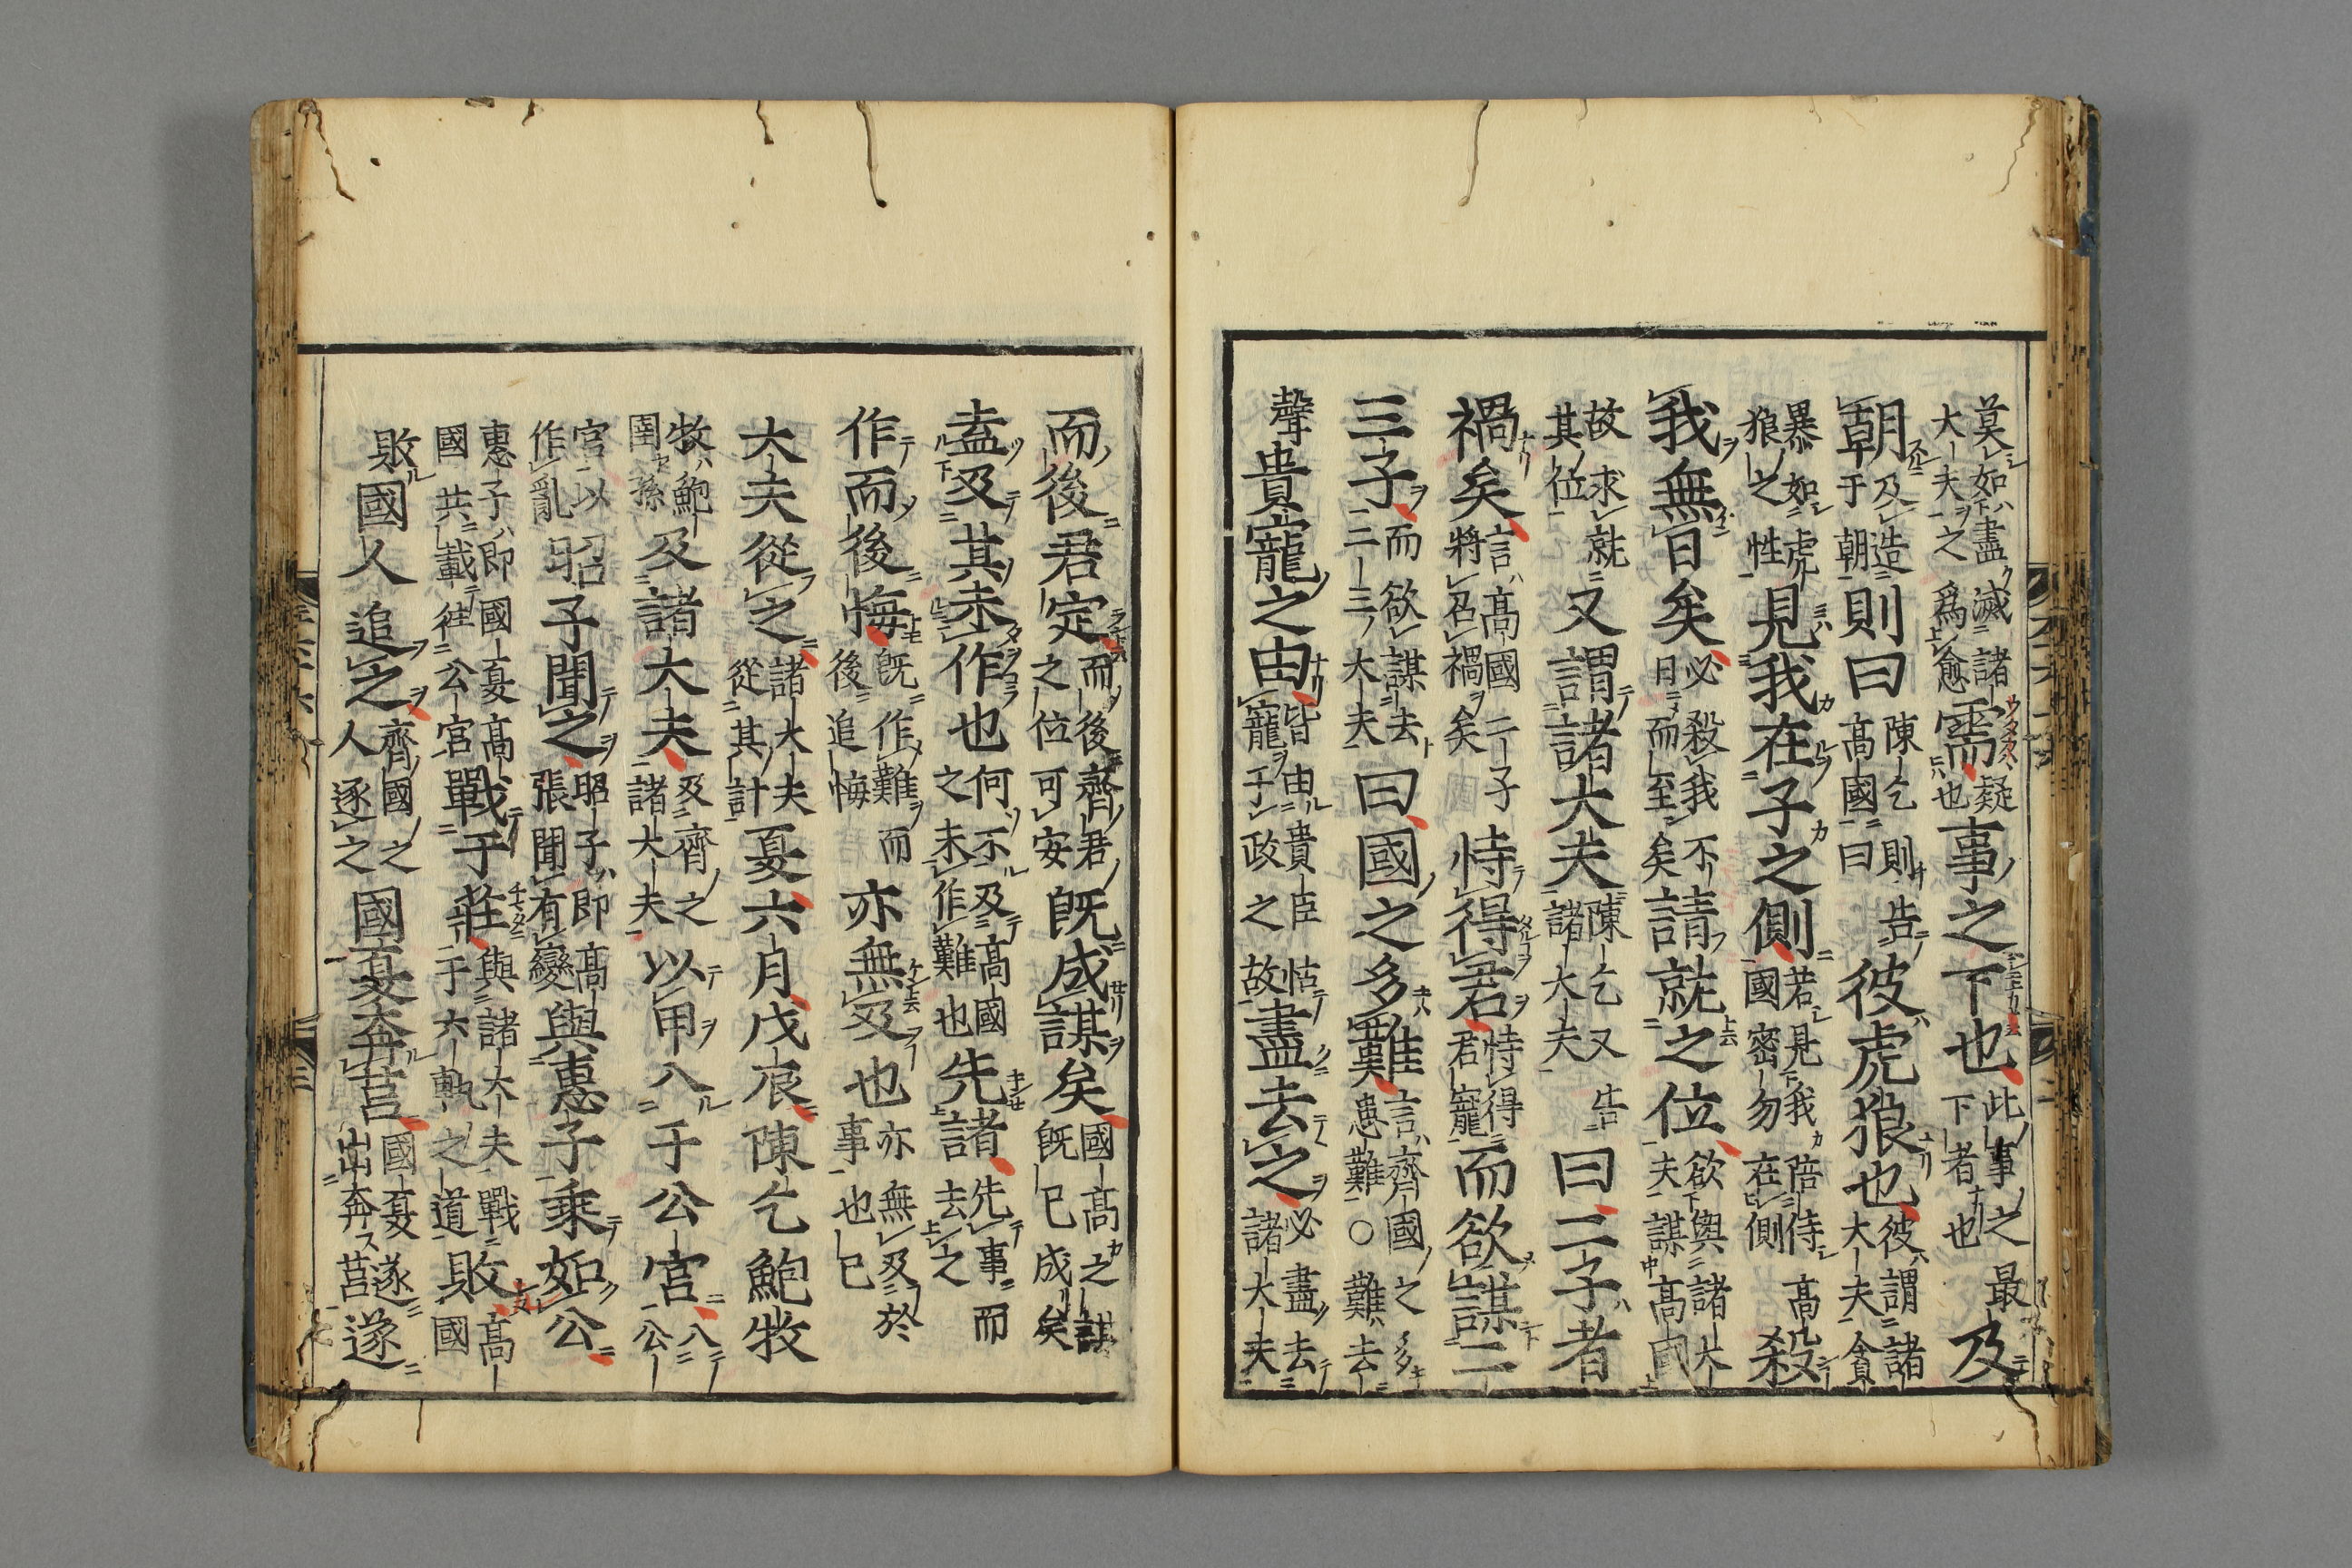 莫如盡滅諸大夫之爲愈需疑也事之下也此事之最下者也及
朝及造于朝則曰陳乞則告高國曰彼虎狼也彼謂諸大夫貪
暴如虎狼之性見我在子之側若見我陪侍高國密勿在側殺
我無日矣必殺我不日而至矣請就之位欲與諸大夫謀高國
故求就其位又謂諸大夫陳乞又告諸大夫曰二子者
禍矣言高國二子將召禍矣恃得君恃得君寵而欲謀二
三子而欲謀去二三大夫曰國之多難言齊國之多患難○難去
聲貴寵之由皆由貴臣怙寵于政之故盡去之必盡去諸大夫
而後君定而後齊君之位可安既成謀矣國高之謀既已成矣
盍及其未作也何不及高國之未作難也先諸先事而去之
作而後悔既作難而後追悔亦無及也亦無及於事也已
大夫從之諸大夫從其計夏六月戊辰陳乞鮑牧
牧鮑圉孫及諸大夫及齊之諸大夫以甲入于公宮入公
宮以作亂昭子聞之昭子即高張聞有變與惠子乘如公
惠子即國夏高國共載往公宮戰于莊與諸大夫戰于六軌之道敗高國
敗國人追之齊國之人逐之國夏奔莒國夏遂出奔莒遂